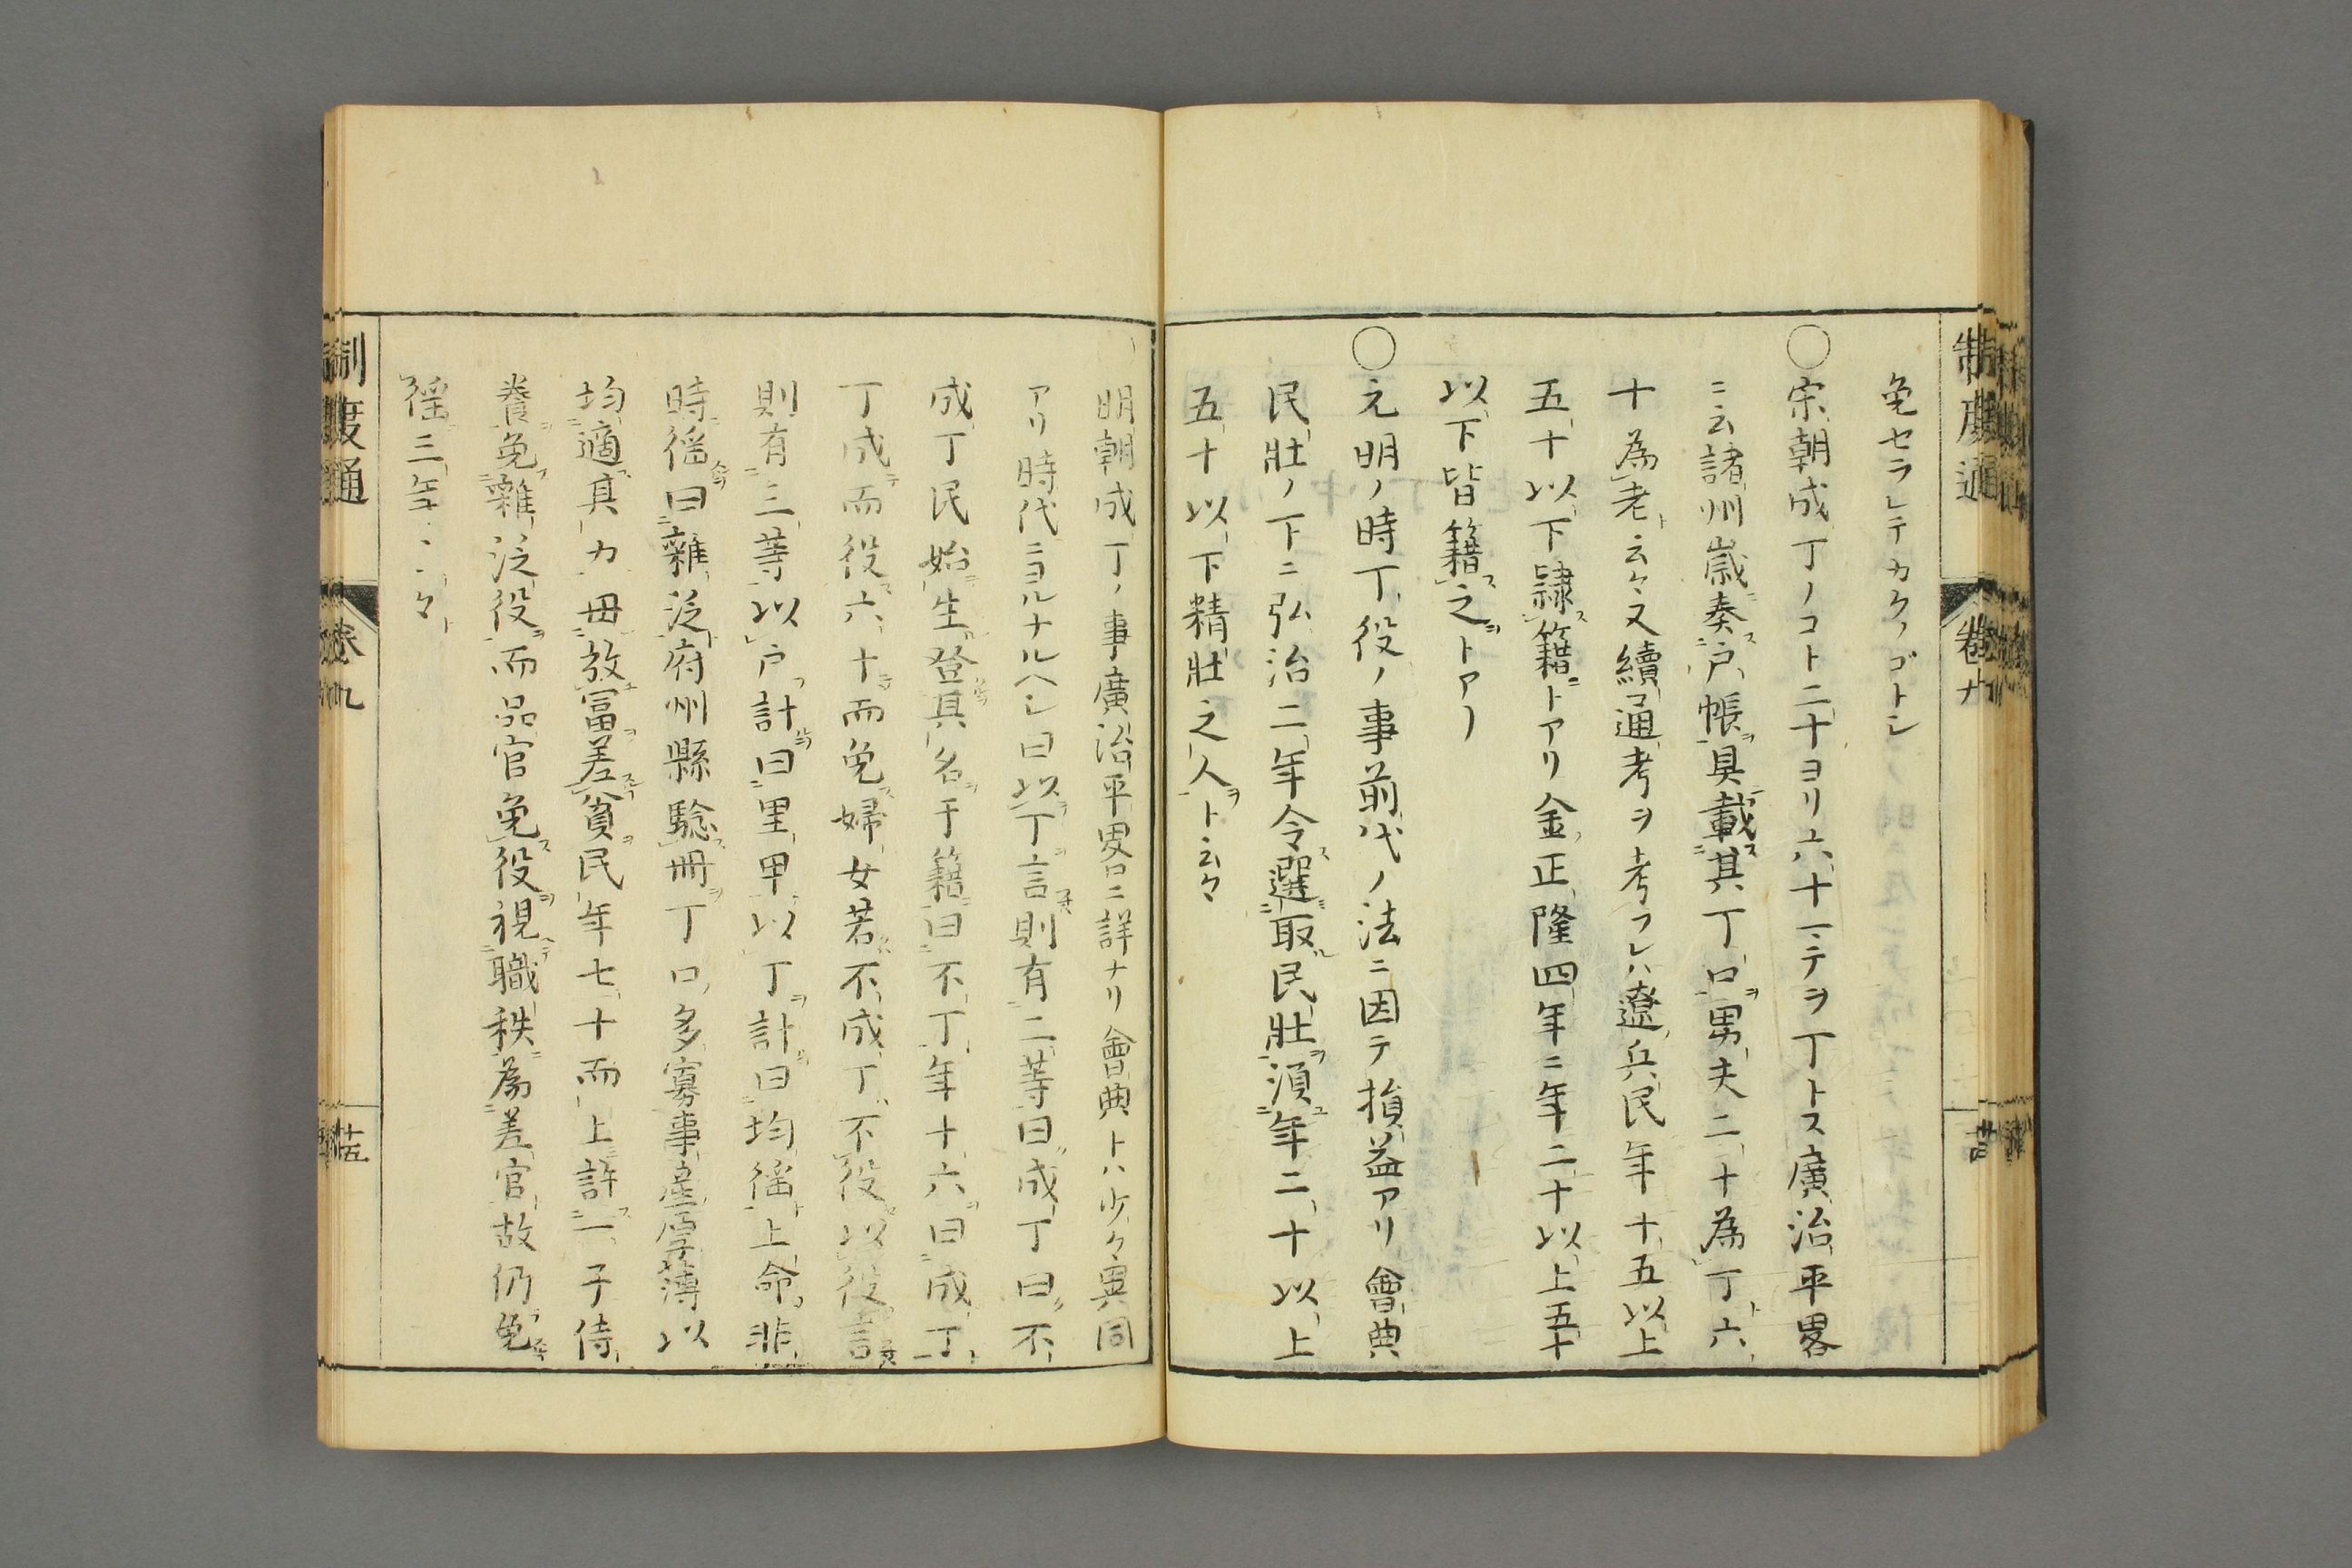 制度通 卷九 廿四
免セラレテカクノゴトシ
〇宋朝成丁ノコト二十ヨリ六十マテヲ丁トス廣治平畧
ニ云諸州歳奏戸帳具載其丁口男夫二十為丁六
十為老云々又續通考ヲ考フレハ遼兵民年十五以上
五十以下隷籍トアリ金正隆四年ニ年二十以上五十
以下皆籍之トアリ
〇元明ノ時丁役ノ事前代ノ法ニ因テ損益アリ會典
民壯ノ下ニ弘治二年令選取民壯須年二十以上
五十以下精壯之人ト云々
明朝成丁ノ事廣治平畧ニ詳ナリ會典トハ少々異同
アリ時代ニヨルナルヘシ曰以丁言則有二等曰成丁曰不
成丁民始生登其名于籍曰不丁年十六曰成丁
丁成而役六十而免婦女若不成丁不役以役言
則有三等以戸計曰里甲以丁計曰均徭上命非
時徭曰雜泛府州縣騐冊丁口多寡事産厚薄以
均適其力毋放冨差貧民年七十而上許一子侍
養免雜泛役而品官免役視職秩為差官故仍免
徭三年云々
制度通 卷九 廿五